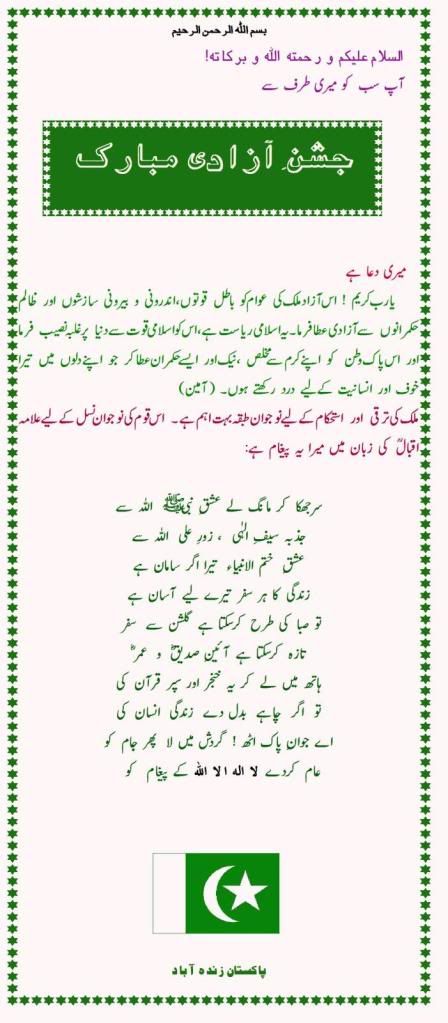 بسم اللہ الرحمن الرحیم
السلام علیکم و رحمتہ اللہ و برکاتہ!
آپ سب کو میری طرف سے
جشنِ آزادی مبارک
میری دعا ہے
یارب کریم ! اس آزاد ملک کی عوام کو باطل قوتوں،اندرونی و بیرونی سازشوں اور ظالم
حکمرانوں سے آزادی عطا فرما۔ یہ اسلامی ریاست ہے،اس کو اسلامی قوت سے دنیا پر غلبہ نصیب فرما
اور اس پاک وطن کو اپنے کرم سے مخلص ،نیک اور ایسے حکمران عطا کر جو اپنے دلوں میں تیرا
خوف اور انسانیت کے لیے درد رکھتے ہوں۔ (آمین)
ملک کی ترقی اور استحکام کے لیے نوجوان طبقہ بہت اہم ہے۔ اس قوم کی نوجوان نسل کے لیے علامہ
اقبالؒ کی زبان میں میرا یہ پیغام ہے:
سر جھکا کر مانگ لے عشق نبیﷺ اللہ سے
جذبہ سیفِ الٰہی ، زورِ علی اللہ سے
عشق ختم الانبیاء تیرا اگر سامان ہے
زندگی کا ہر سفر تیرے لیے آسان ہے
تو صبا کی طرح کرسکتا ہے گلشن سے سفر
تازہ کرسکتا ہے آئین صدیقؓ و عمرؓ
ہاتھ میں لے کر یہ خنجر اور سپر قرآن کی
تو اگر چاہے بدل دے زندگی انسان کی
اے جوان پاک اٹھ ! گردش میں لا پھر جام کو
عام کردے لا الہ الا اللہ کے پیغام کو
پاکستان زندہ آباد